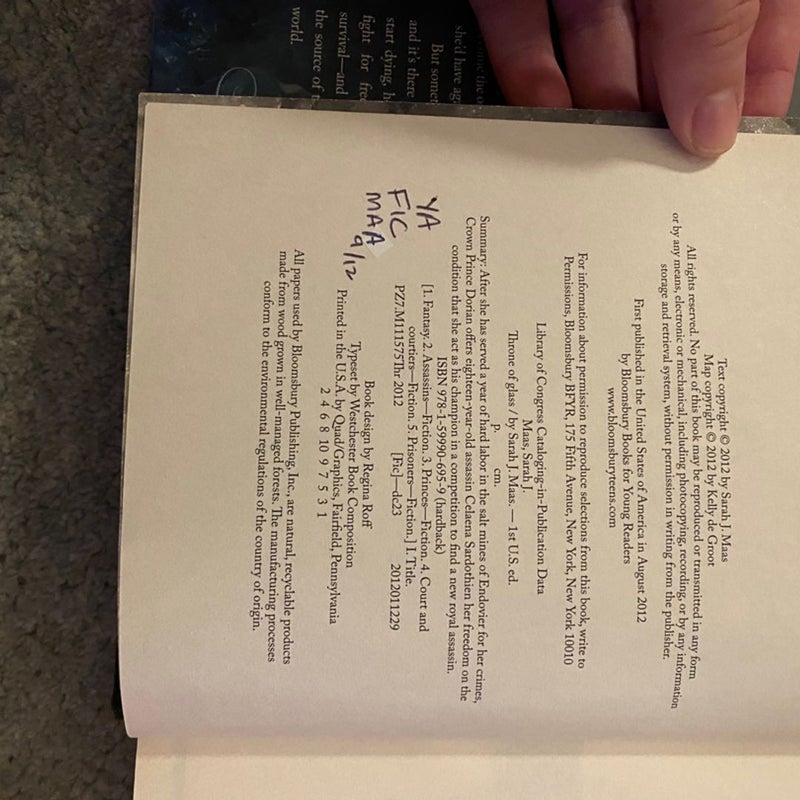 she'd have ag
But somet
and it's there
start dying, h
fight for fre
survival—and
the source of t
world.
Text copyright © 2012 by Sarah J. Maas
Map copyright © 2012 by Kelly de Groot
All rights reserved. No part of this book may be reproduced or transmitted in any form
or by any means, electronic or mechanical, including photocopying, recording, or by any information
storage and retrieval system, without permission in writing from the publisher.
First published in the United States of America in August 2012
by Bloomsbury Books for Young Readers
www.bloomsburyteens.com
For information about permission to reproduce selections from this book, write to
Permissions, Bloomsbury BFYR, 175 Fifth Avenue, New York, New York 10010
Library of Congress Cataloging-in-Publication Data
Maas, Sarah J.
Throne of glass / by Sarah J. Maas. — 1st U.S. ed.
p. cm.
Summary: After she has served a year of hard labor in the salt mines of Endovier for her crimes,
Crown Prince Dorian offers eighteen-year-old assassin Celaena Sardothien her freedom on the
condition that she act as his champion in a competition to find a new royal assassin.
ISBN 978-1-59990-695-9 (hardback)
[1. Fantasy. 2. Assassins—Fiction. 3. Princes—Fiction. 4. Court and
courtiers—Fiction. 5. Prisoners—Fiction.] I. Title.
PZ7.M111575Thr 2012 [Fic]—dc23 2012011229
YA
FIC
MAA
9/12
Book design by Regina Roff
Typeset by Westchester Book Composition
Printed in the U.S.A. by Quad/Graphics, Fairfield, Pennsylvania
2 4 6 8 10 9 7 5 3 1
All papers used by Bloomsbury Publishing, Inc., are natural, recyclable products
made from wood grown in well-managed forests. The manufacturing processes
conform to the environmental regulations of the country of origin.